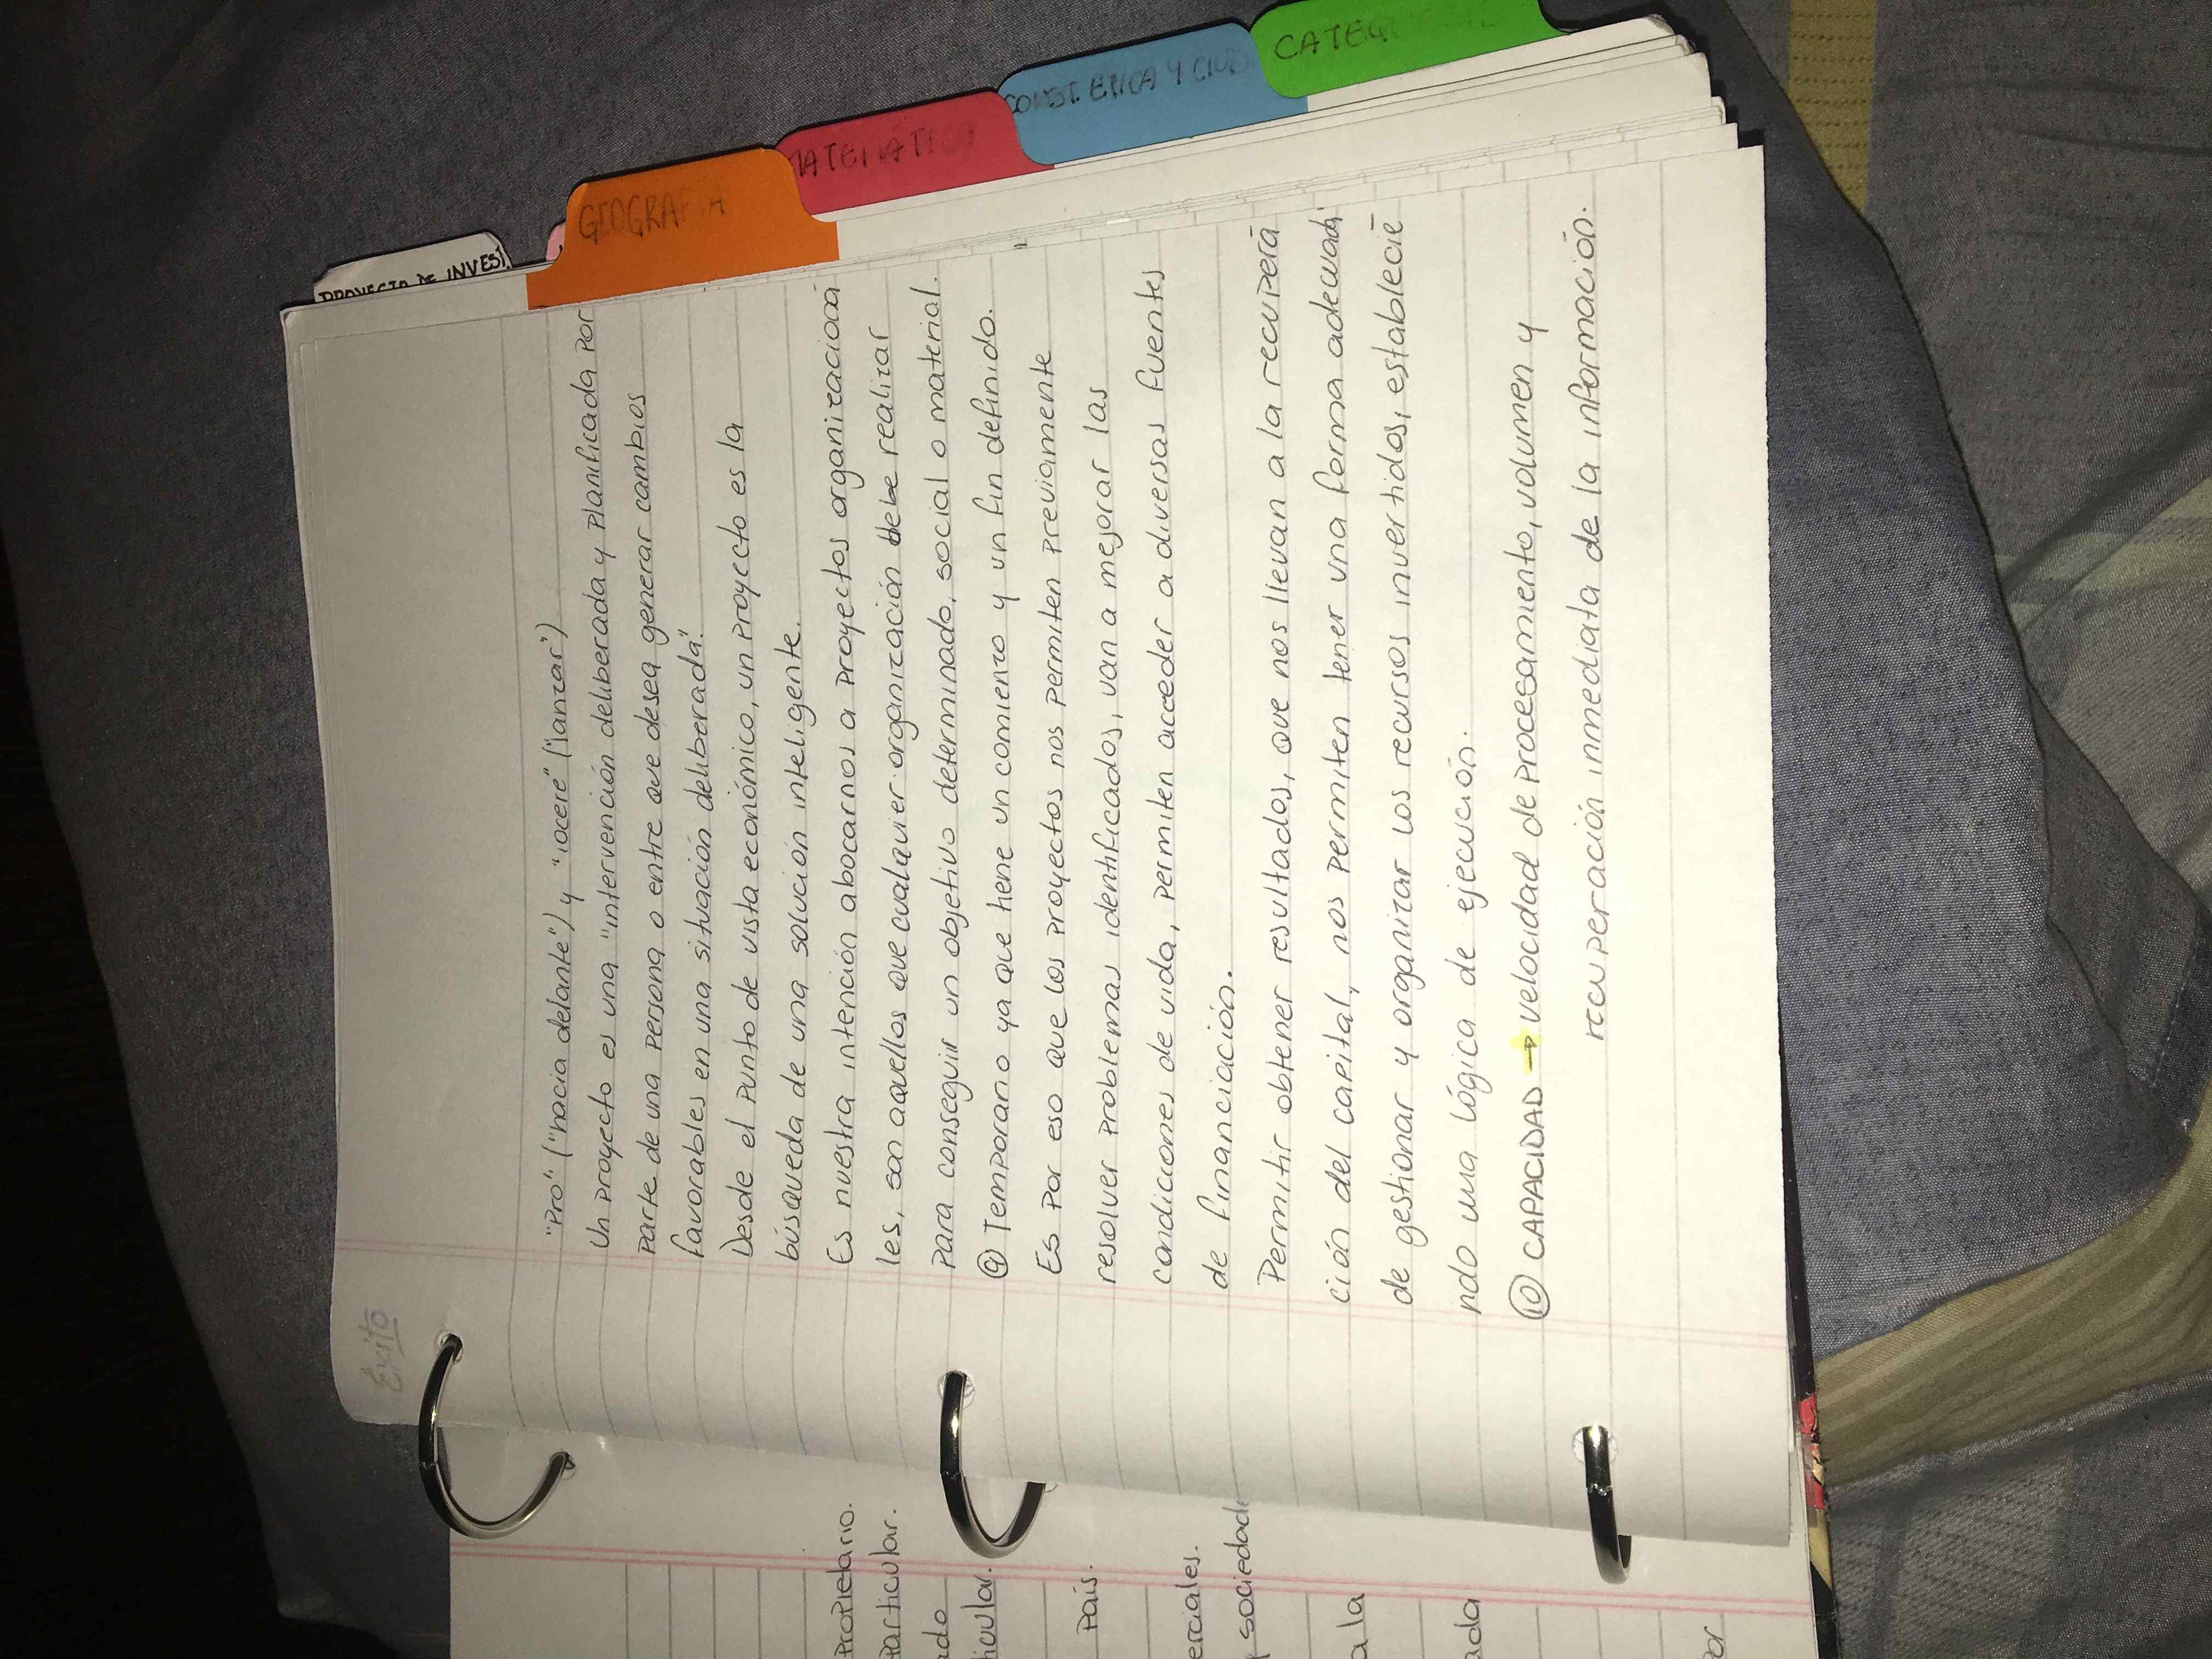 PROYECTO DE INVEST.
GEOGRAFÍA
MATEMÁTICA
CONST. ETICA Y CIUD
CATEQUESIS
Éxito
"Pro" ("hacia delante") y "iocere" ("lanzar")
Un proyecto es una "intervención deliberada y planificada por
parte de una persona o entre que desea generar cambios
favorables en una situación deliberada".
Desde el punto de vista económico, un proyecto es la
búsqueda de una solución inteligente.
Es nuestra intención abocarnos a proyectos organizaciona
les, son aquellos que cualquier organización debe realizar
para conseguir un objetivo determinado, social o material.
⑨ Temporario ya que tiene un comienzo y un fin definido.
Es por eso que los proyectos nos permiten previamente
resolver problemas identificados, van a mejorar las
condiciones de vida, permiten acceder a diversas fuentes
de financiación.
Permitir obtener resultados, que nos llevan a la recupera
ción del capital, nos permiten tener una forma adecuada
de gestionar y organizar los recursos invertidos, establecie
ndo una lógica de ejecución.
⑩ CAPACIDAD → velocidad de procesamiento, volumen y
recuperación inmediata de la información.
propietario.
particular.
ado
ticular.
país.
erciales.
y sociedade
a la
ada
por